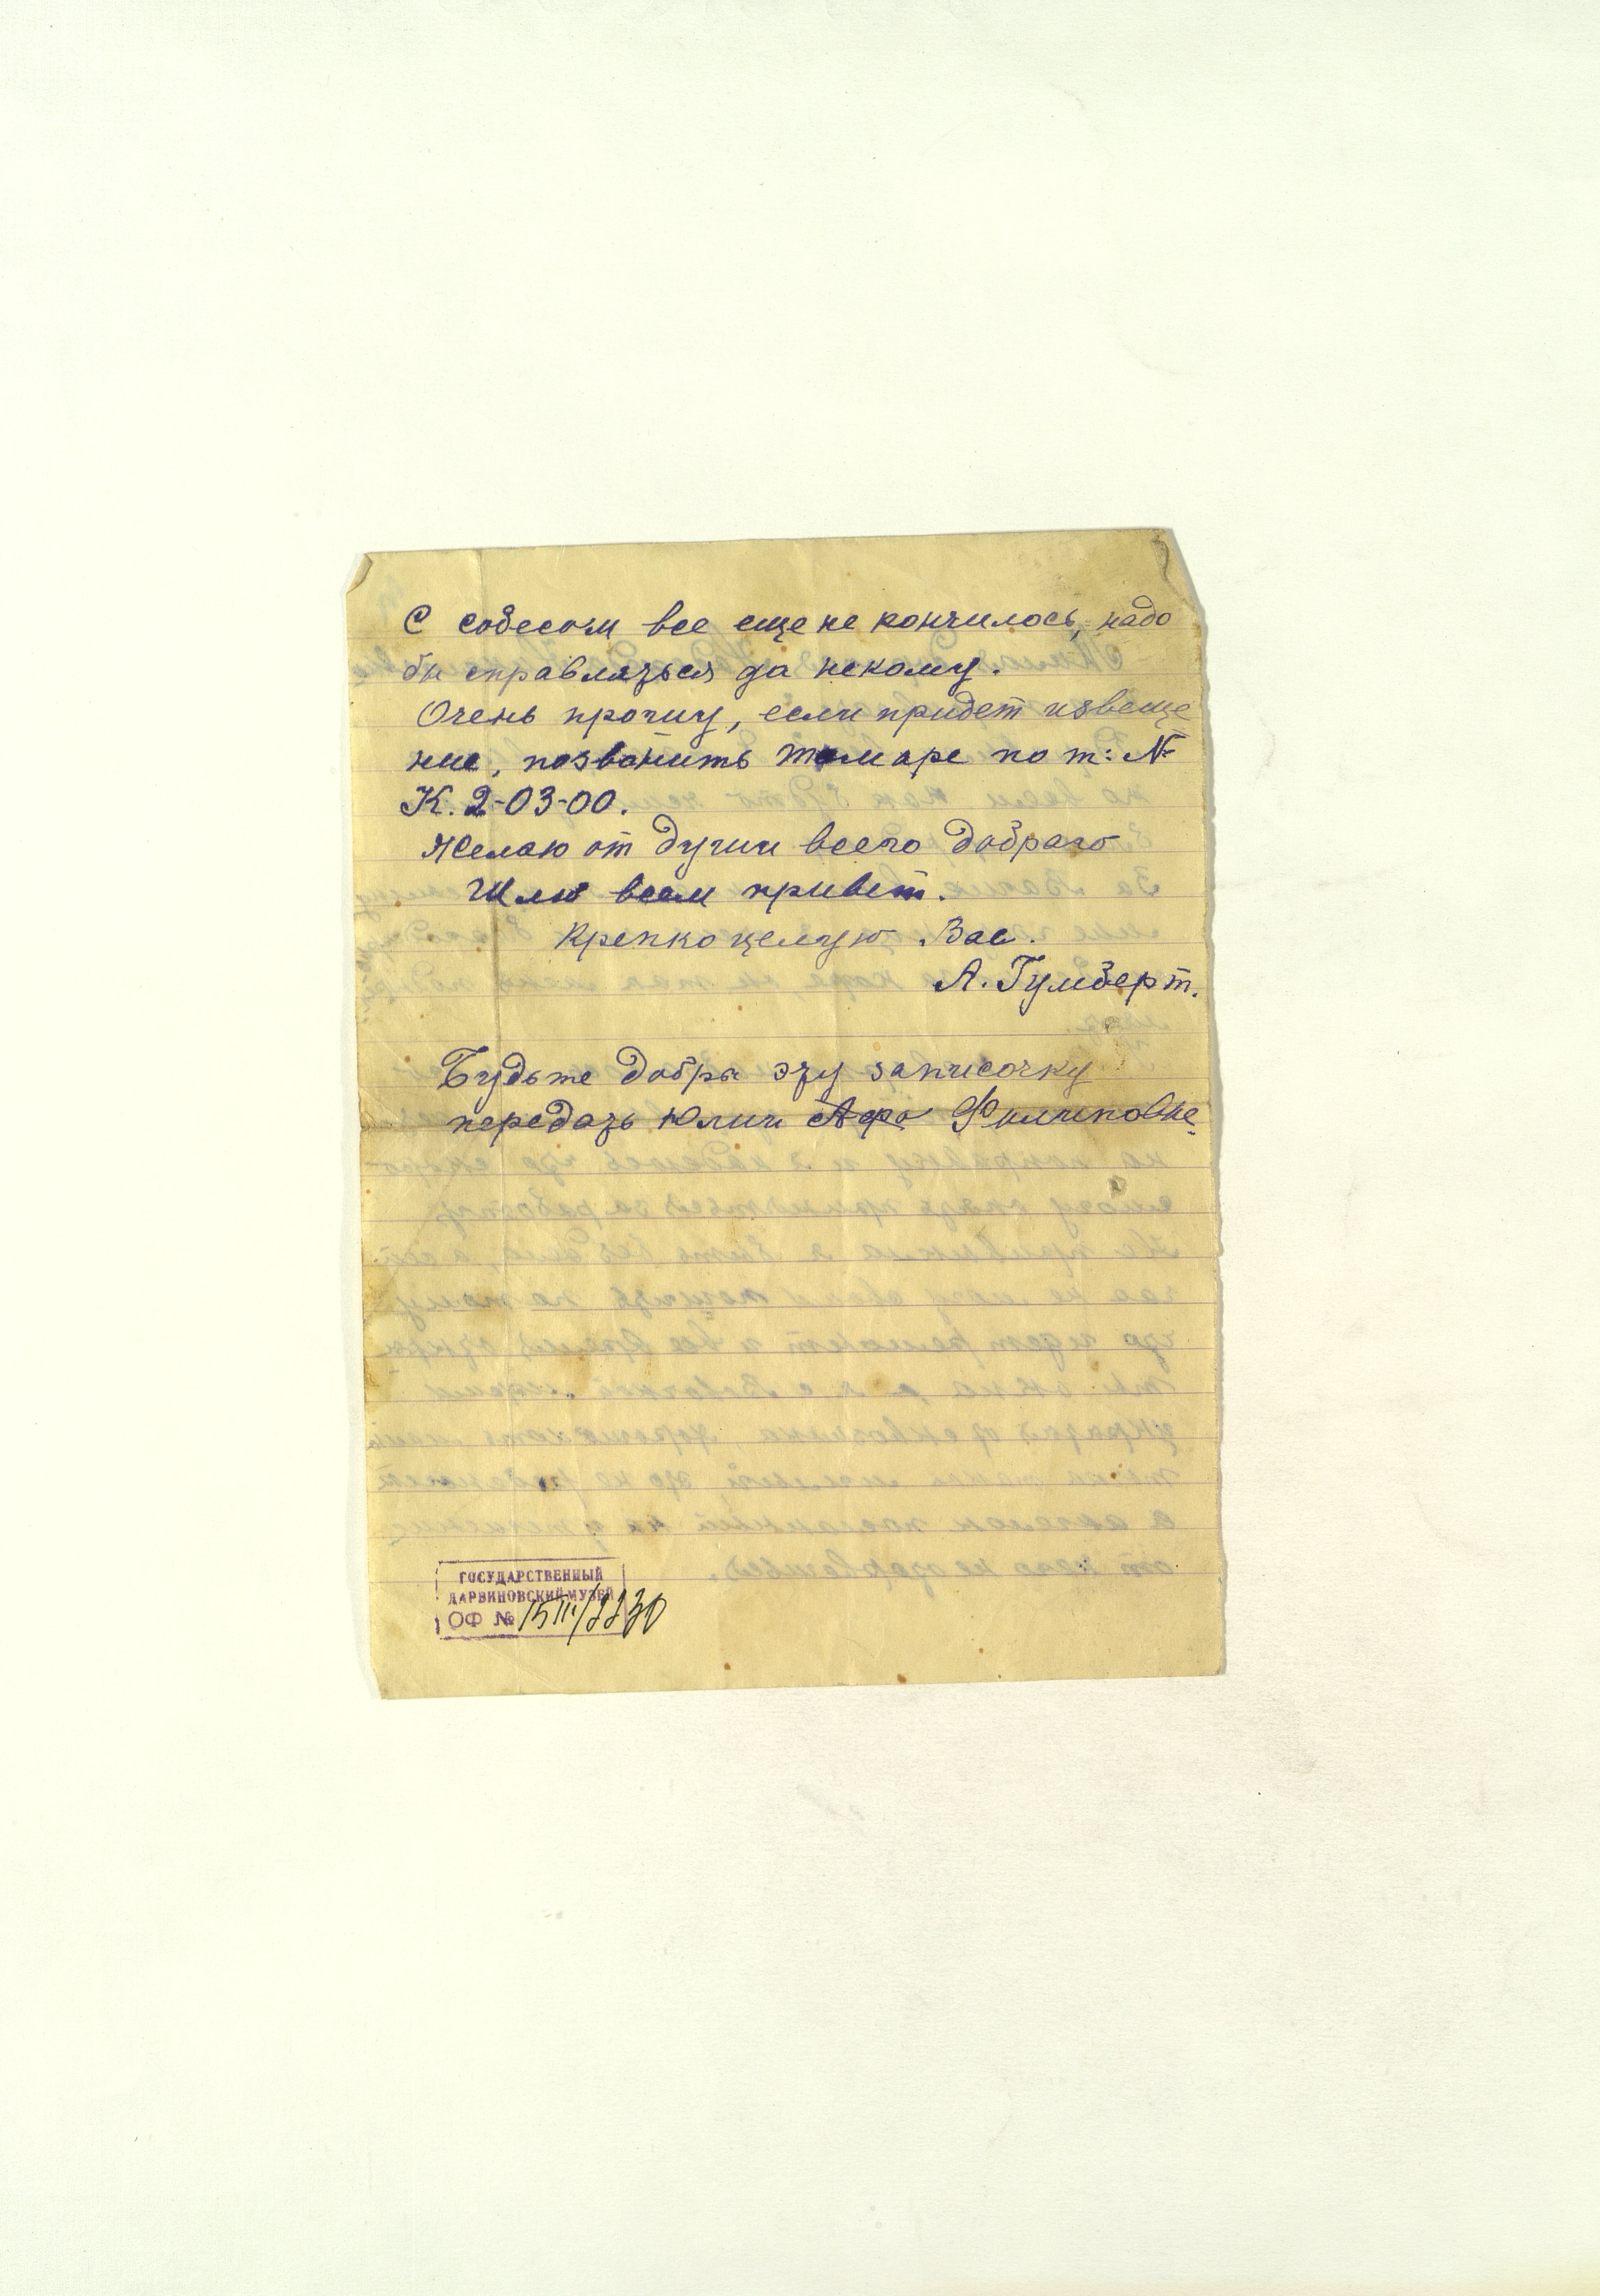 С собесом все еще не кончилось, надо
бы справляться да некому.
Очень прошу, если придет извеще
ние, позвонить Тамаре по т: №
К. 2-03-00.
Желаю от души всего доброго
Шлю всем привет.
Крепко целую Вас.
А. Гумберт.
Будьте добры эту записочку
передать Юлии Афа Филиповне.
ГОСУДАРСТВЕННЫЙ
ДАРВИНОВСКИЙ МУЗЕЙ
ОФ №